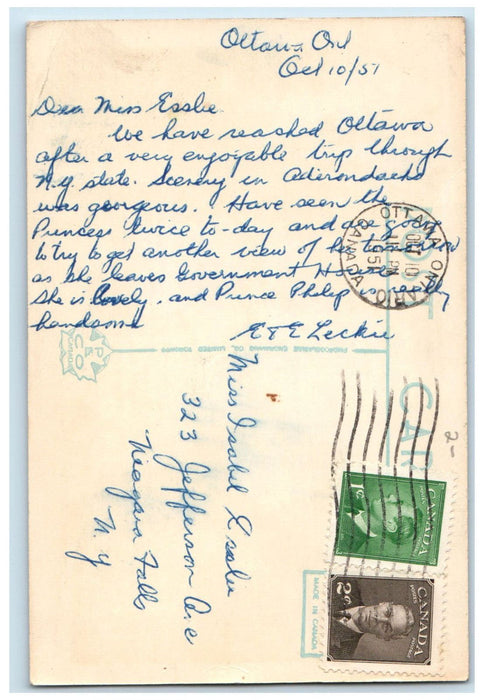 Ottawa Ont
Oct 10/51
Dear Miss Esslie
We have reached Ottawa
after a very enjoyable trip through
N.Y. state. Scenery in Adirondacks
was gorgeous. Have seen the
Princess twice to-day and are going
to try to get another view of her tomorrow
as she leaves Government House
She is lovely, and Prince Philip is really
handsome
E & E Leckie
Miss Isabel Esslie
323 Jefferson Ave
Niagara Falls
N.Y
OTTAWA ONTARIO
OCT 10
PM
1951
CANADA
CAR
PHOTOGELATINE ENGRAVING CO. LIMITED TORONTO
PECO
CANADA
MADE IN CANADA
CANADA
POSTES POSTAGE
1¢
CANADA
POSTES POSTAGE
2¢
2-